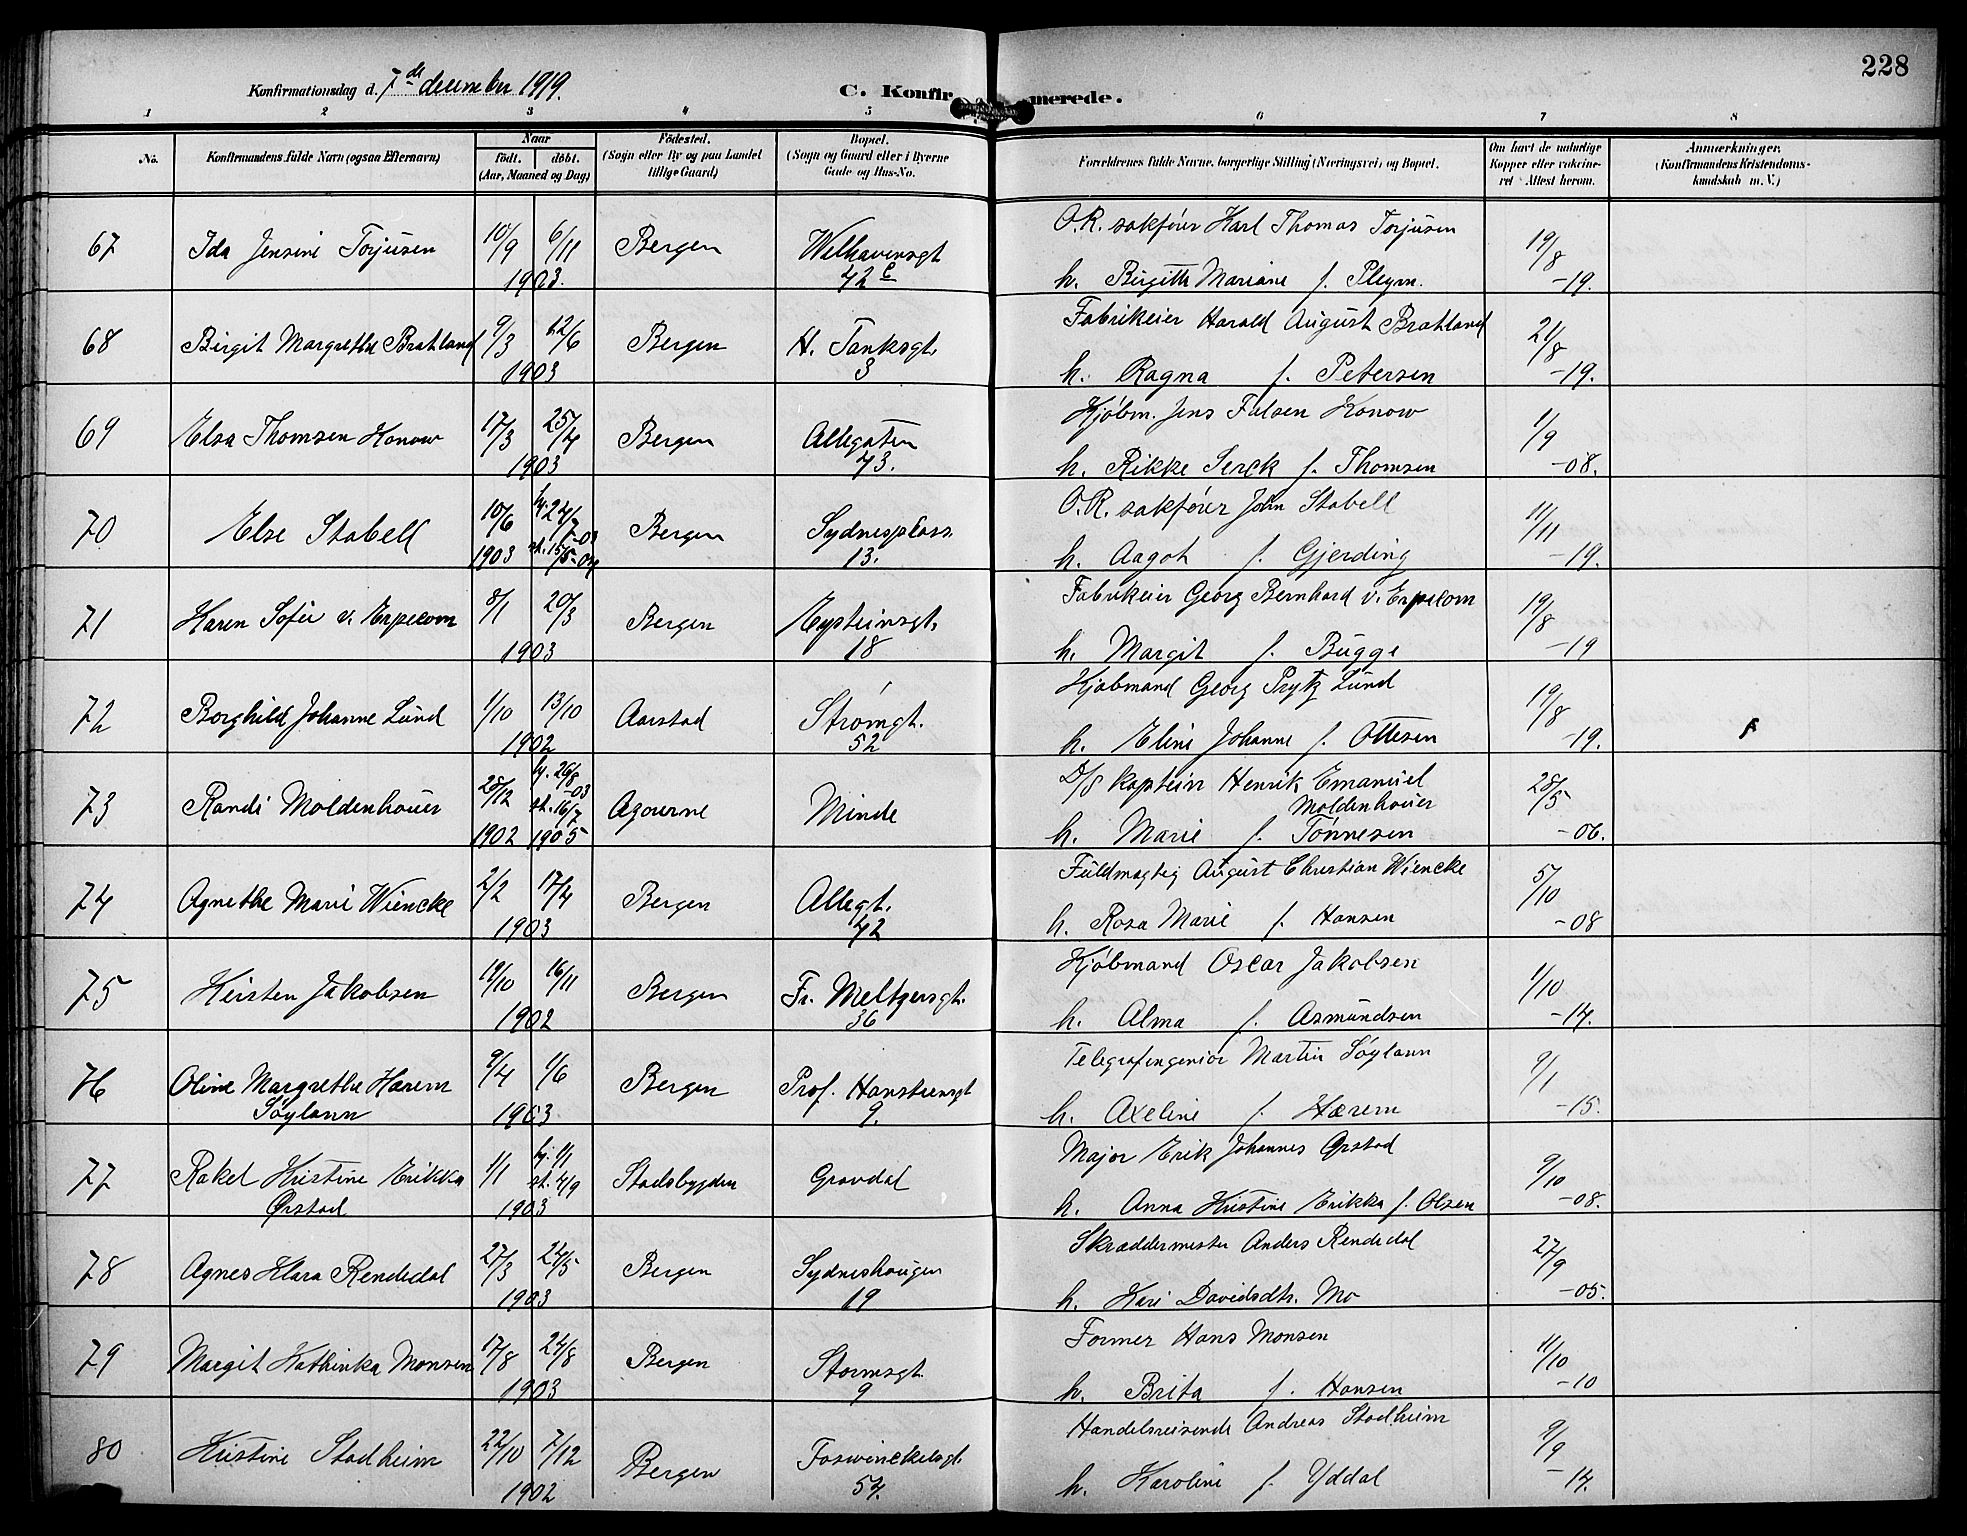 228
Konfirmationsdag d. 7de december 1919.
C. Konfirmerede.
1 2 3 4 5 6 7 8
No.
Konfirmandens fulde Navn (ogsaa Efternavn)
Naar
født. døbt.
(Aar, Maaned og Dag)
Födested.
(Sogn eller By og paa Landet
tillige Gaard)
Bopæl.
(Sogn og Gaard eller i Byerne
Gade og Hus-No.
Forældrenes fulde Navne, borgerlige Stilling (Næringsvei) og Bopæl.
Om havt de naturlige
Kopper eller vakcine-
ret Attest herom.
Anmærkninger.
(Konfirmandens Kristendoms-
kundskab m. V.)
67 Ida Jensine Torjusen 10/9 6/11 Bergen Welhavensgt O.R. sakfører Karl Thomas Torjusen 19/8
1903. 42 c h. Birgitte Mariane f. Pleym. -19.
68 Birgit Margrethe Bratland 9/3 12/6 Bergen H. Tanksgt. Fabrikeier Harald August Bratland 21/8
1903 3 h. Ragna f. Petersen -19.
69 Elsa Thomsen Konow 17/3 25/4 Bergen Allegaten Kjøbm. Jens Falsen Konow 1/9
1903 43. h. Rikke Serck f. Thomsen -08.
70 Else Stabell 10/6 hj. 24/7-03 Bergen Sydnesplass. O.R. sakfører John Stabell 11/11
1903 st. 15/5-04 13. h. Aagot f. Gjerding -19.
71 Karen Sofie v. Erpecom 8/1 20/3 Bergen Eysteinsgt. Fabrikeier Georg Bernhard v. Erpecom 19/8
1903 18 h. Margit f. Bugge -19
72 Borghild Johanne Lund 1/10 13/10 Aarstad Strømgt. Kjøbmand Georg Prytz Lund 19/8
1902 52 h. Eline Johanne f. Ottesen -19.
73 Randi Moldenhouer 28/12 hj. 26/8-03 Agourne Minde D/S kaptein Henrik Emanuel 28/5
st. 16/7 Moldenhouer
1902 1905 h. Marie f. Tønnesen -06.
74 Agnethe Marie Wiencke 2/2 17/4 Bergen Allegt. Fuldmægtig August Christian Wiencke 5/10
1903 42 h. Rosa Marie f. Hansen -08
75 Kirsten Jakobsen 19/10 16/11 Bergen Fr. Meltzersgt. Kjøbmand Oscar Jakobsen 1/10
1902 36 h. Alma f. Asmundsen -14.
76 Oline Margrethe Hærem 9/4 1/6 Bergen Prof. Hansteensgt Telegrafingeniør Martin Søyland 9/1
Søylann 1903 9. h. Axeline f. Hærem -15.
77 Rakel Kristine Erikka 1/1 hj. 1/1 Stadsbygden Gravdal Major Erik Johannes Ørstad 9/10
st. 4/9
Ørstad 1903 h. Anna Kristine Erikka f. Olsen -08.
78 Agnes Klara Rendedal 27/3 24/5 Bergen Sydneshaugen Skræddermester Anders Rendedal 27/9
1903 19 h. Kari Davidsdtr. Mo -05.
79 Margit Kathinka Monsen 17/8 24/8 Bergen Stormsgt. Former Hans Monsen 11/10
1903 9 h. Brita f. Hansen -10
80 Kristine Stadheim 22/10 7/12 Bergen Foswinckelsgt. Handelsreisende Andreas Stadheim 9/9
1902 54. h. Karoline f. Yddal -14.